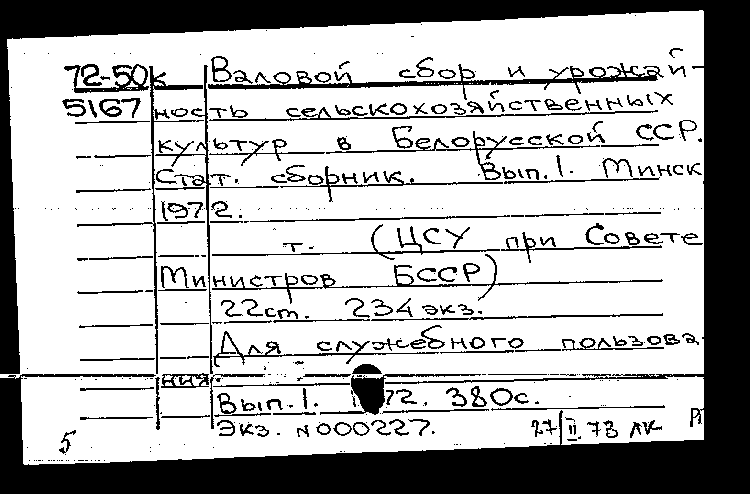 72-50к Валовой сбор и урожай-
5167 ность сельскохозяйственных
культур в Белорусской ССР.
Стат. сборник. Вып.1. Минск
1972.
т. (ЦСУ при Совете
Министров БССР)
22ст. 234 экз.
Для служебного пользова
ния.
Вып.1. 1972. 380с.
Экз. N000227.
27/II.73 ЛК
5